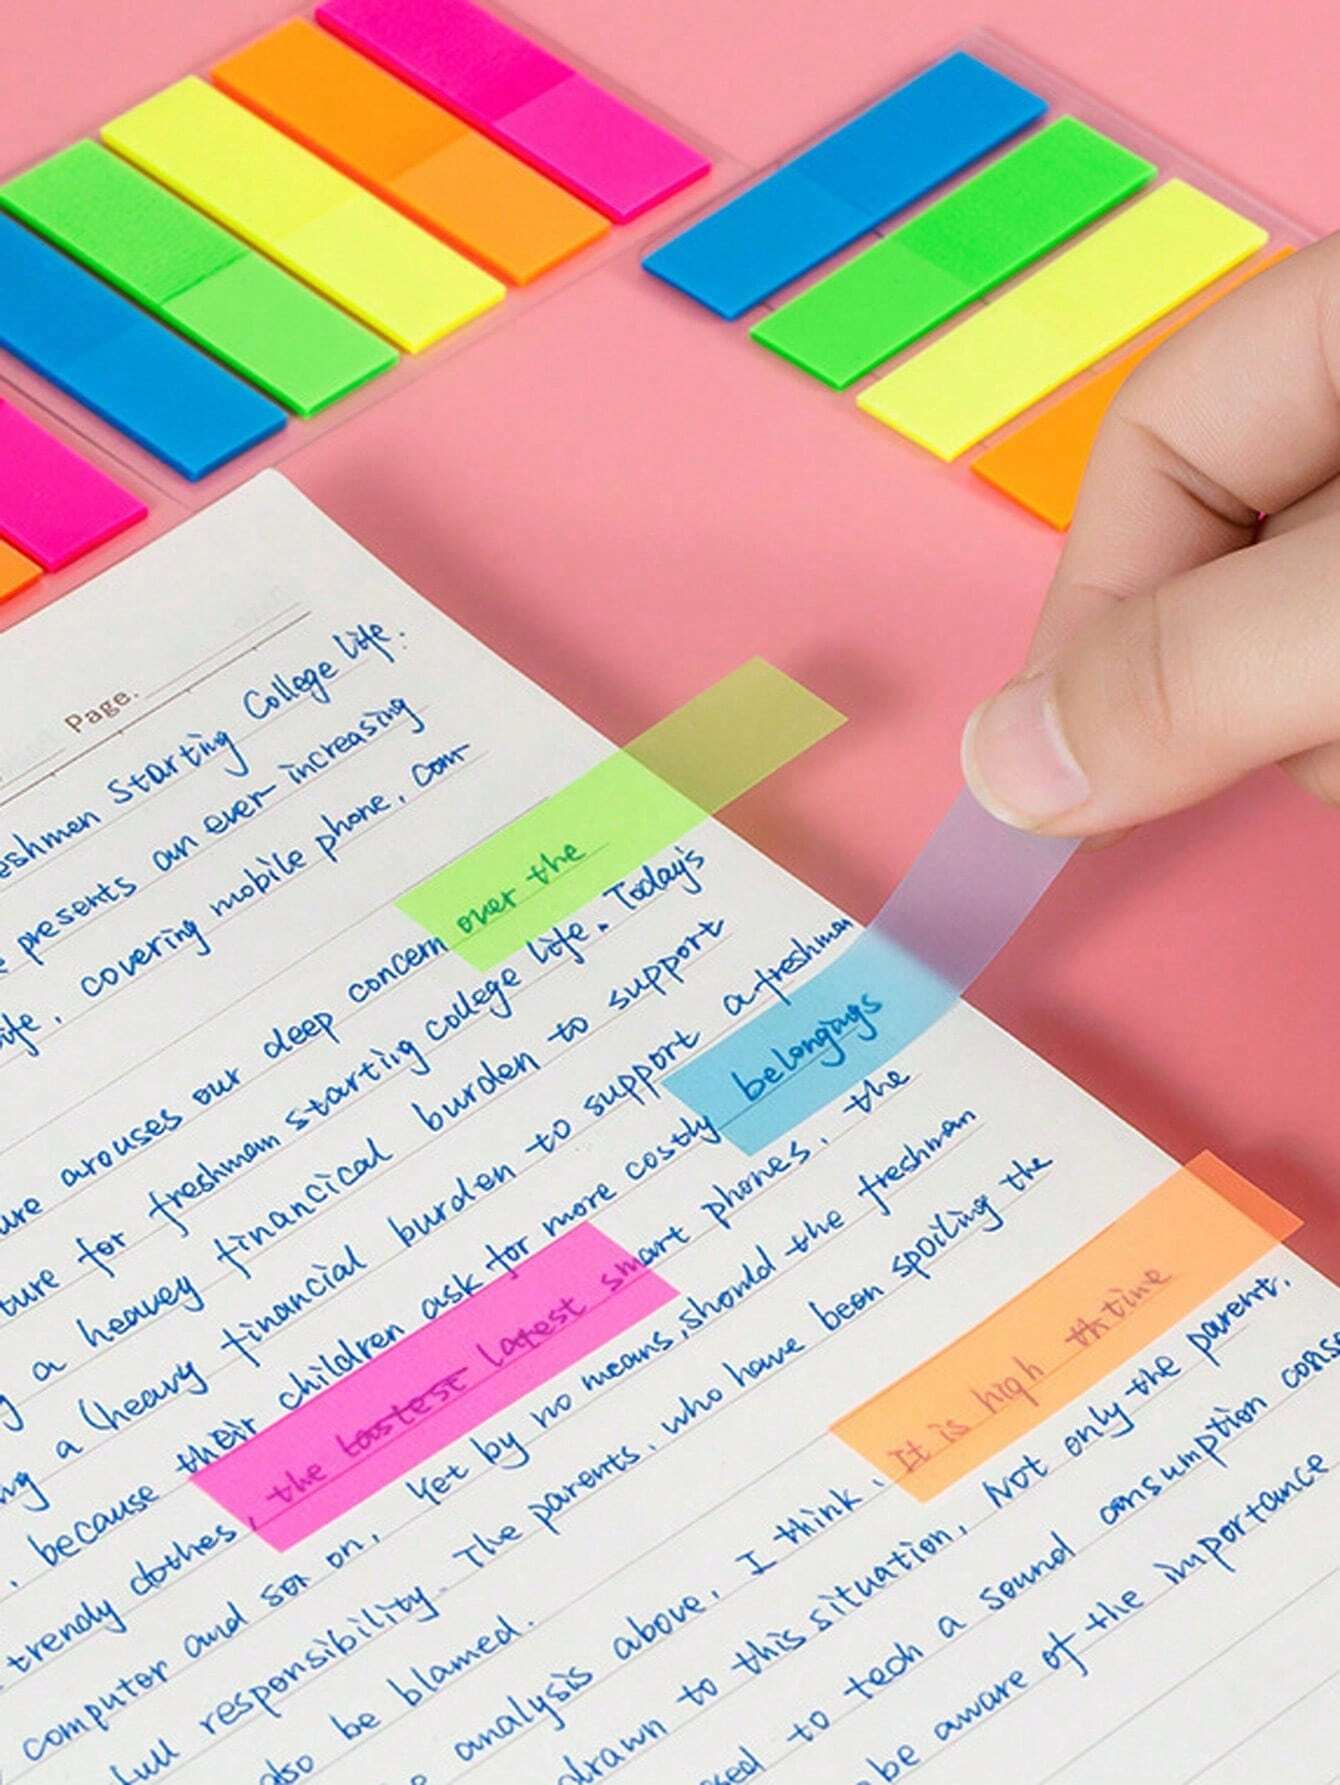 Page.
eshmen Starting College life.
presents an ever-increasing
life, covering mobile phone, com-
ure arouses our deep concern over the
ture for freshmam starting college life. Today's
a heavey financical burden to support
a (heavy financial burden to support a freshman
, because their children ask for more costly belongings
trendy clothes, the lastest latest smart phones, the
computor and so on, Yet by no means, should the freshman
full responsibility. The parents, who have been spoiling the
also be blamed.
analysis above, I think, It is high thtime
drawn to this situation, Not only the parent,
sed to teach a sound consumption conse
be aware of the importance